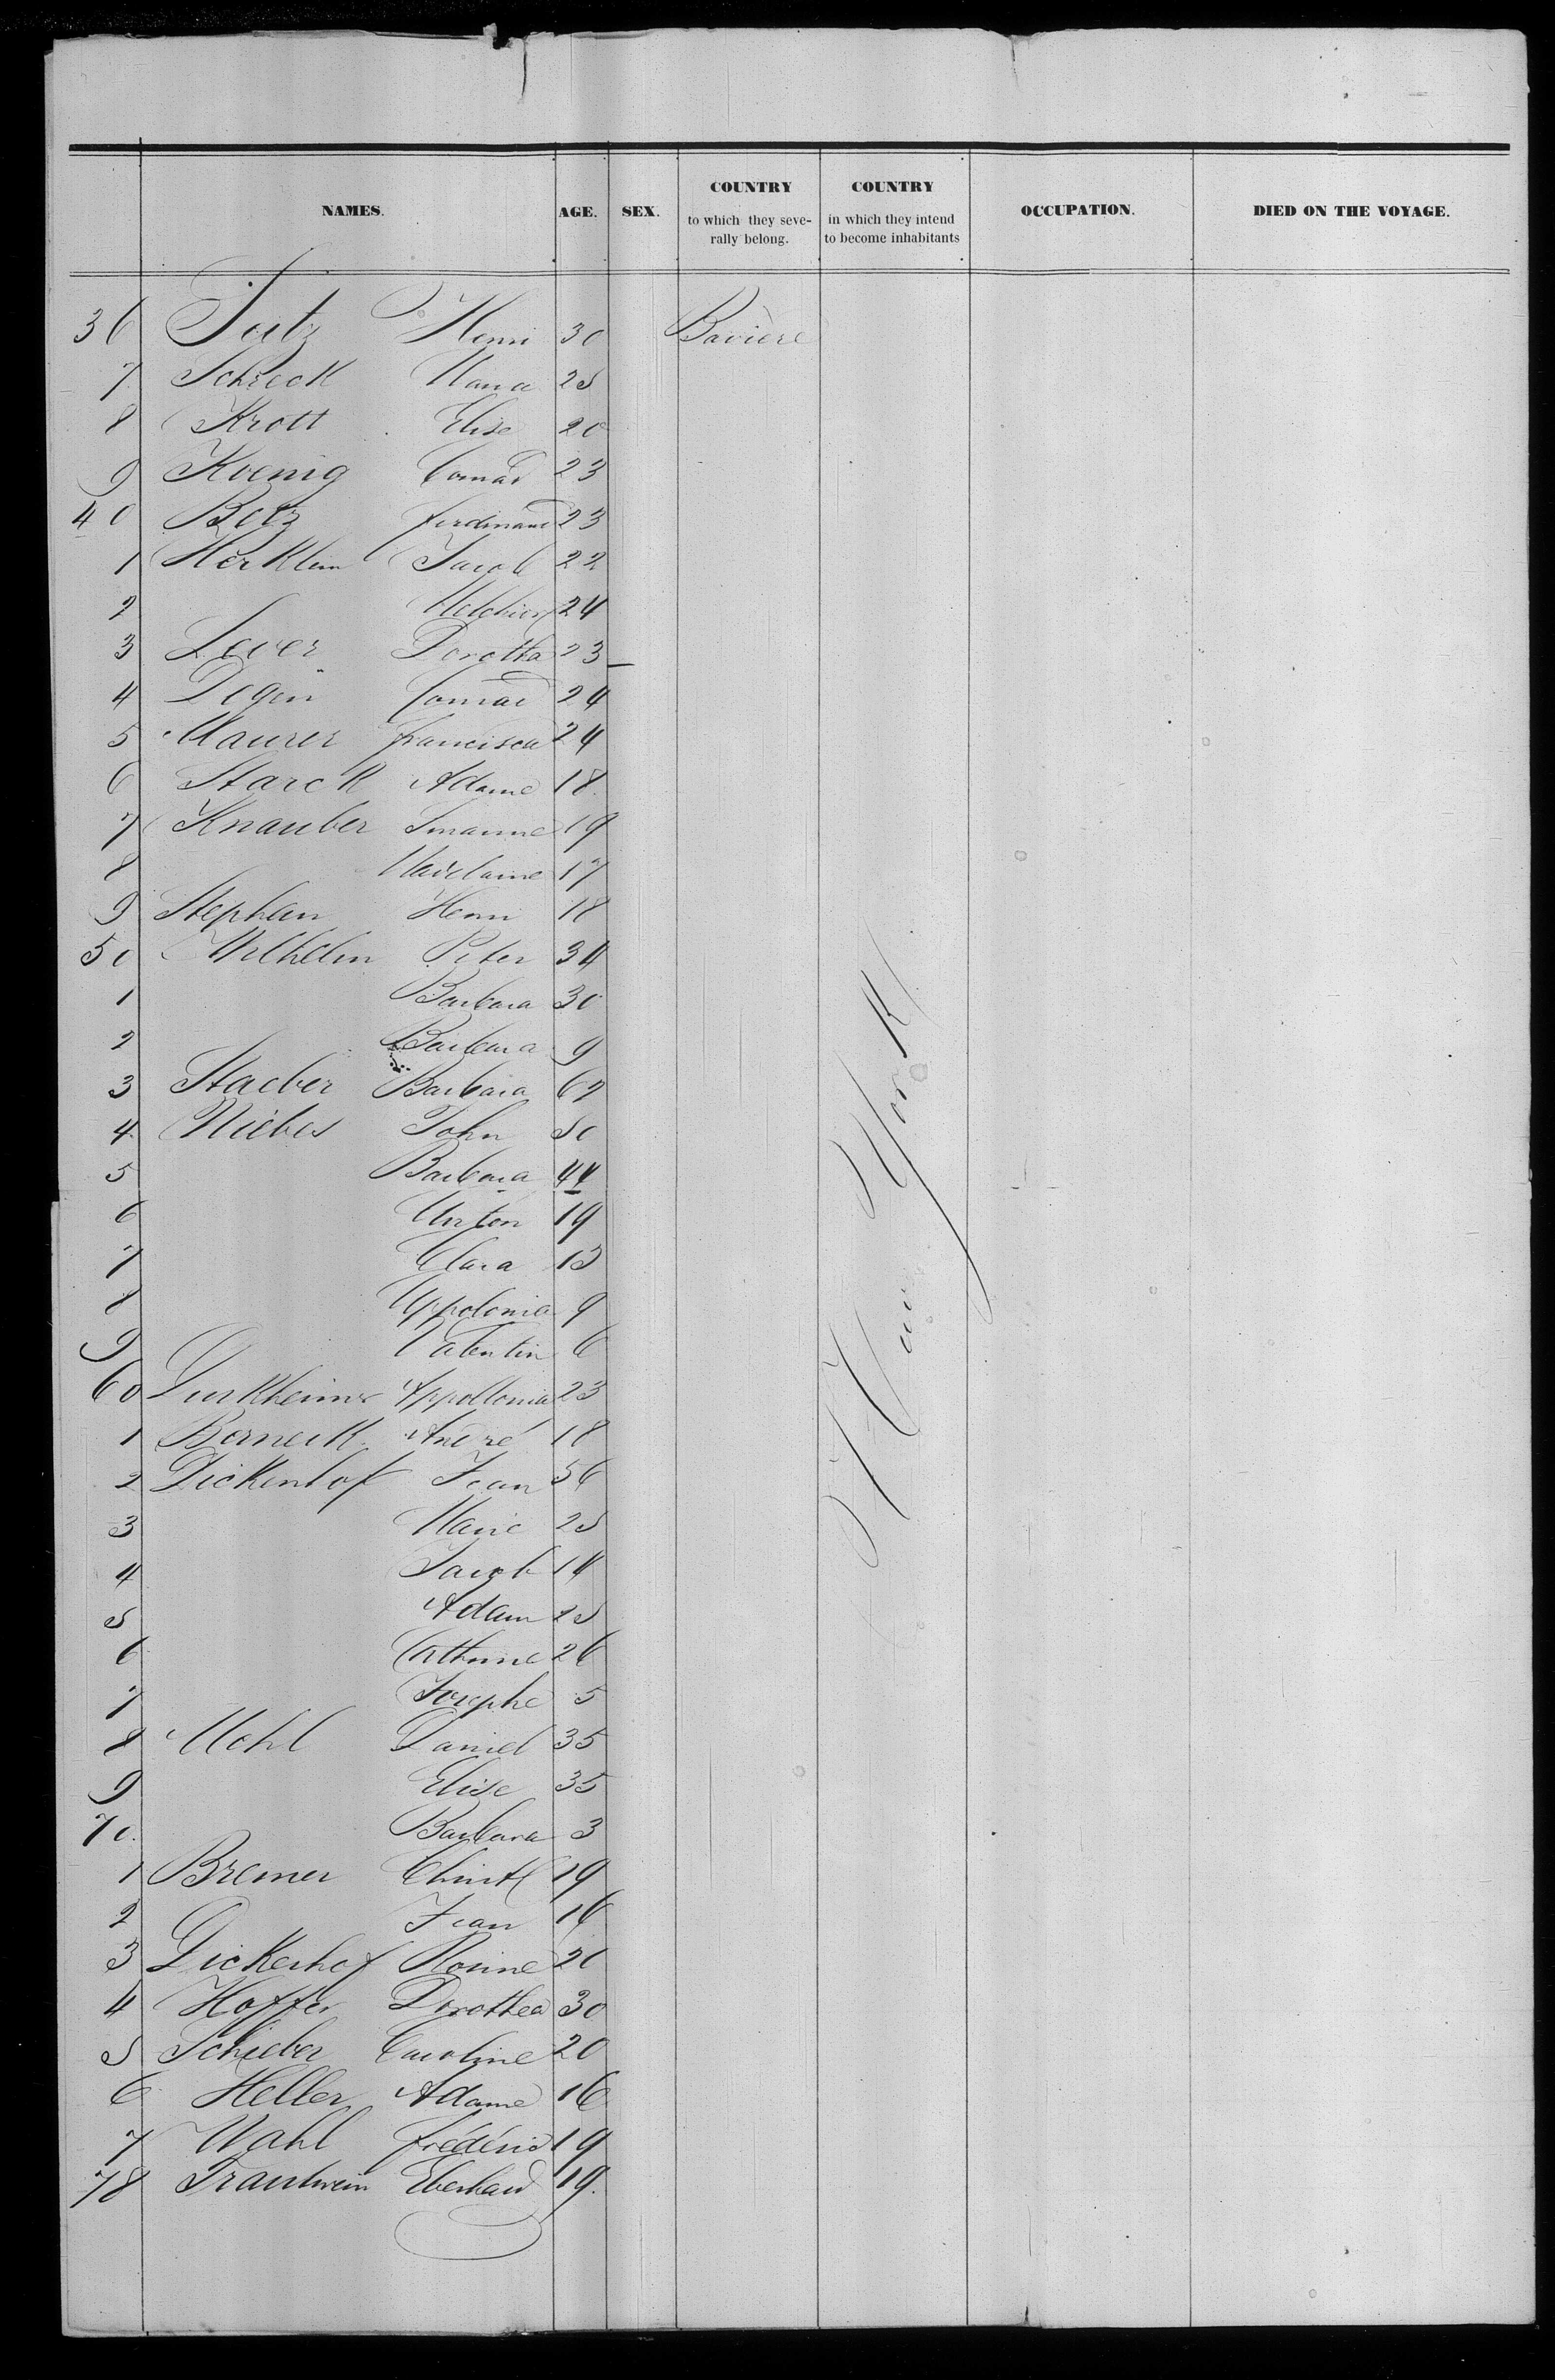 NAMES. AGE. SEX. COUNTRY to which they severally belong. COUNTRY in which they intend to become inhabitants OCCUPATION. DIED ON THE VOYAGE.
36 Henri 30 Bavière
7 Schreck 25
8 Krott Elise 20
9 Koenig Conrad 23
40 Betz ferdinand 23
1 Herklein Jacob 22
2 Melchior 24
3 Lever Dorotha 23
4 Degen Conrad 24
5 Maurer francisca 24
6 Starck Adame 18
7 Knauber Susanne 19
8 Madelaine 17
9 Stephan Henri 18
50 Wilhelm Peter 34
1 Barbara 30
2 Barbara 9
3 Staeber Barbara 62
4 Niebes John 50
5 Barbara 44
6 Anton 19
7 Clara 13
8 Appolonia 9
9 Valentin 6
60 Durkheimer Appollonia 23
1 Berneck André 18
2 Dickenhof Jean 56
3 Marie 25
4 Jacob 14
5 Adam 25
6 Catherine 26
7 Josephe 5
8 Mohl Daniel 35
9 Elise 35
70 Barbara 3
1 Bremer Christ 19
2 Jean 16
3 Dickerhof Rosine 20
4 Hoffer Dorothea 30
5 Schieber Caroline 20
6 Heller Adame 16
7 Wahl frédéric 19
78 Trautwein Eberhard 19.
New York